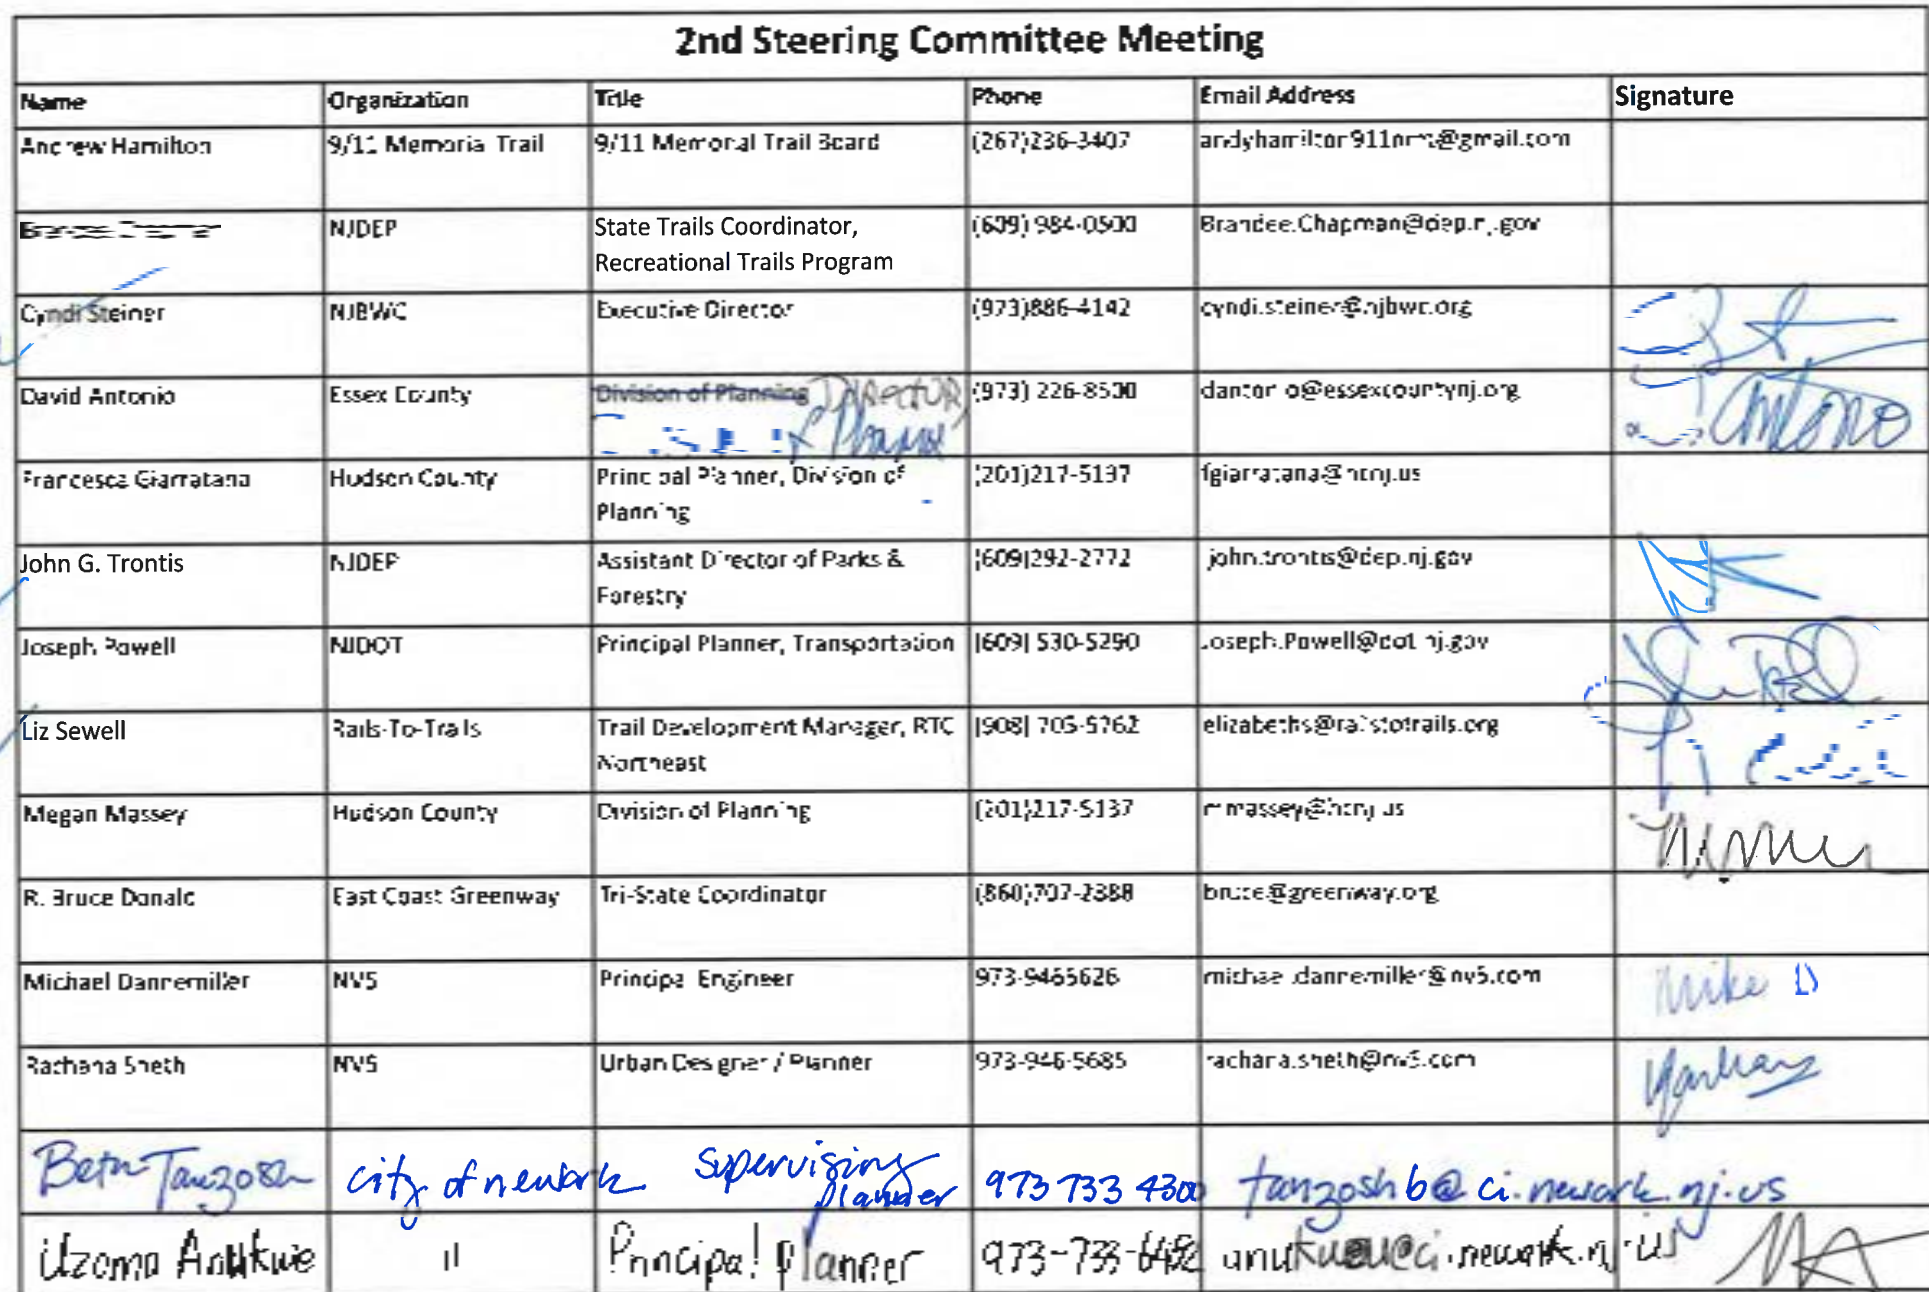 2nd Steering Committee Meeting
Name Organization Title Phone Email Address Signature
Andrew Hamilton 9/11 Memorial Trail 9/11 Memorial Trail Board (267)236-3407 @gmail.com
NJDEP State Trails Coordinator, (609) 984-0500 Brandee.Chapman@dep.nj.gov
Recreational Trails Program
Cyndi Steiner NJBWC Executive Director (973)886-4142 cyndi.steiner@njbwc.org
David Antonio Essex County Division of Planning DIRECTOR, (973) 226-8500 dantonio@essexcountynj.org Antonio
Francesca Giarratana Hudson County Principal Planner, Division of (201)217-5137 fgiarratana@hcnj.us
Planning
John G. Trontis NJDEP Assistant Director of Parks & (609)292-2772 john.trontis@dep.nj.gov
Forestry
Joseph Powell NJDOT Principal Planner, Transportation (609) 530-5290 Joseph.Powell@dot.nj.gov
Liz Sewell Rails-To-Trails Trail Development Manager, RTC (908) 705-5762 elizabeths@railstotrails.org
Northeast
Megan Massey Hudson County Division of Planning (201)217-5137 mmassey@hcnj.us
R. Bruce Donald East Coast Greenway Tri-State Coordinator (860)707-2388 bruce@greenway.org
Michael Dannemiller NV5 Principal Engineer 973-9465626 michael.dannemiller@nv5.com Mike D
Rachana Sheth NV5 Urban Designer / Planner 973-946-5685 rachana.sheth@nv5.com
Beth Tanzosh city of newark Supervising planner 973 733 4300 tanzoshb@ci.newark.nj.us
Uzoma Anukwe 11 Principal planner 973-733-6452